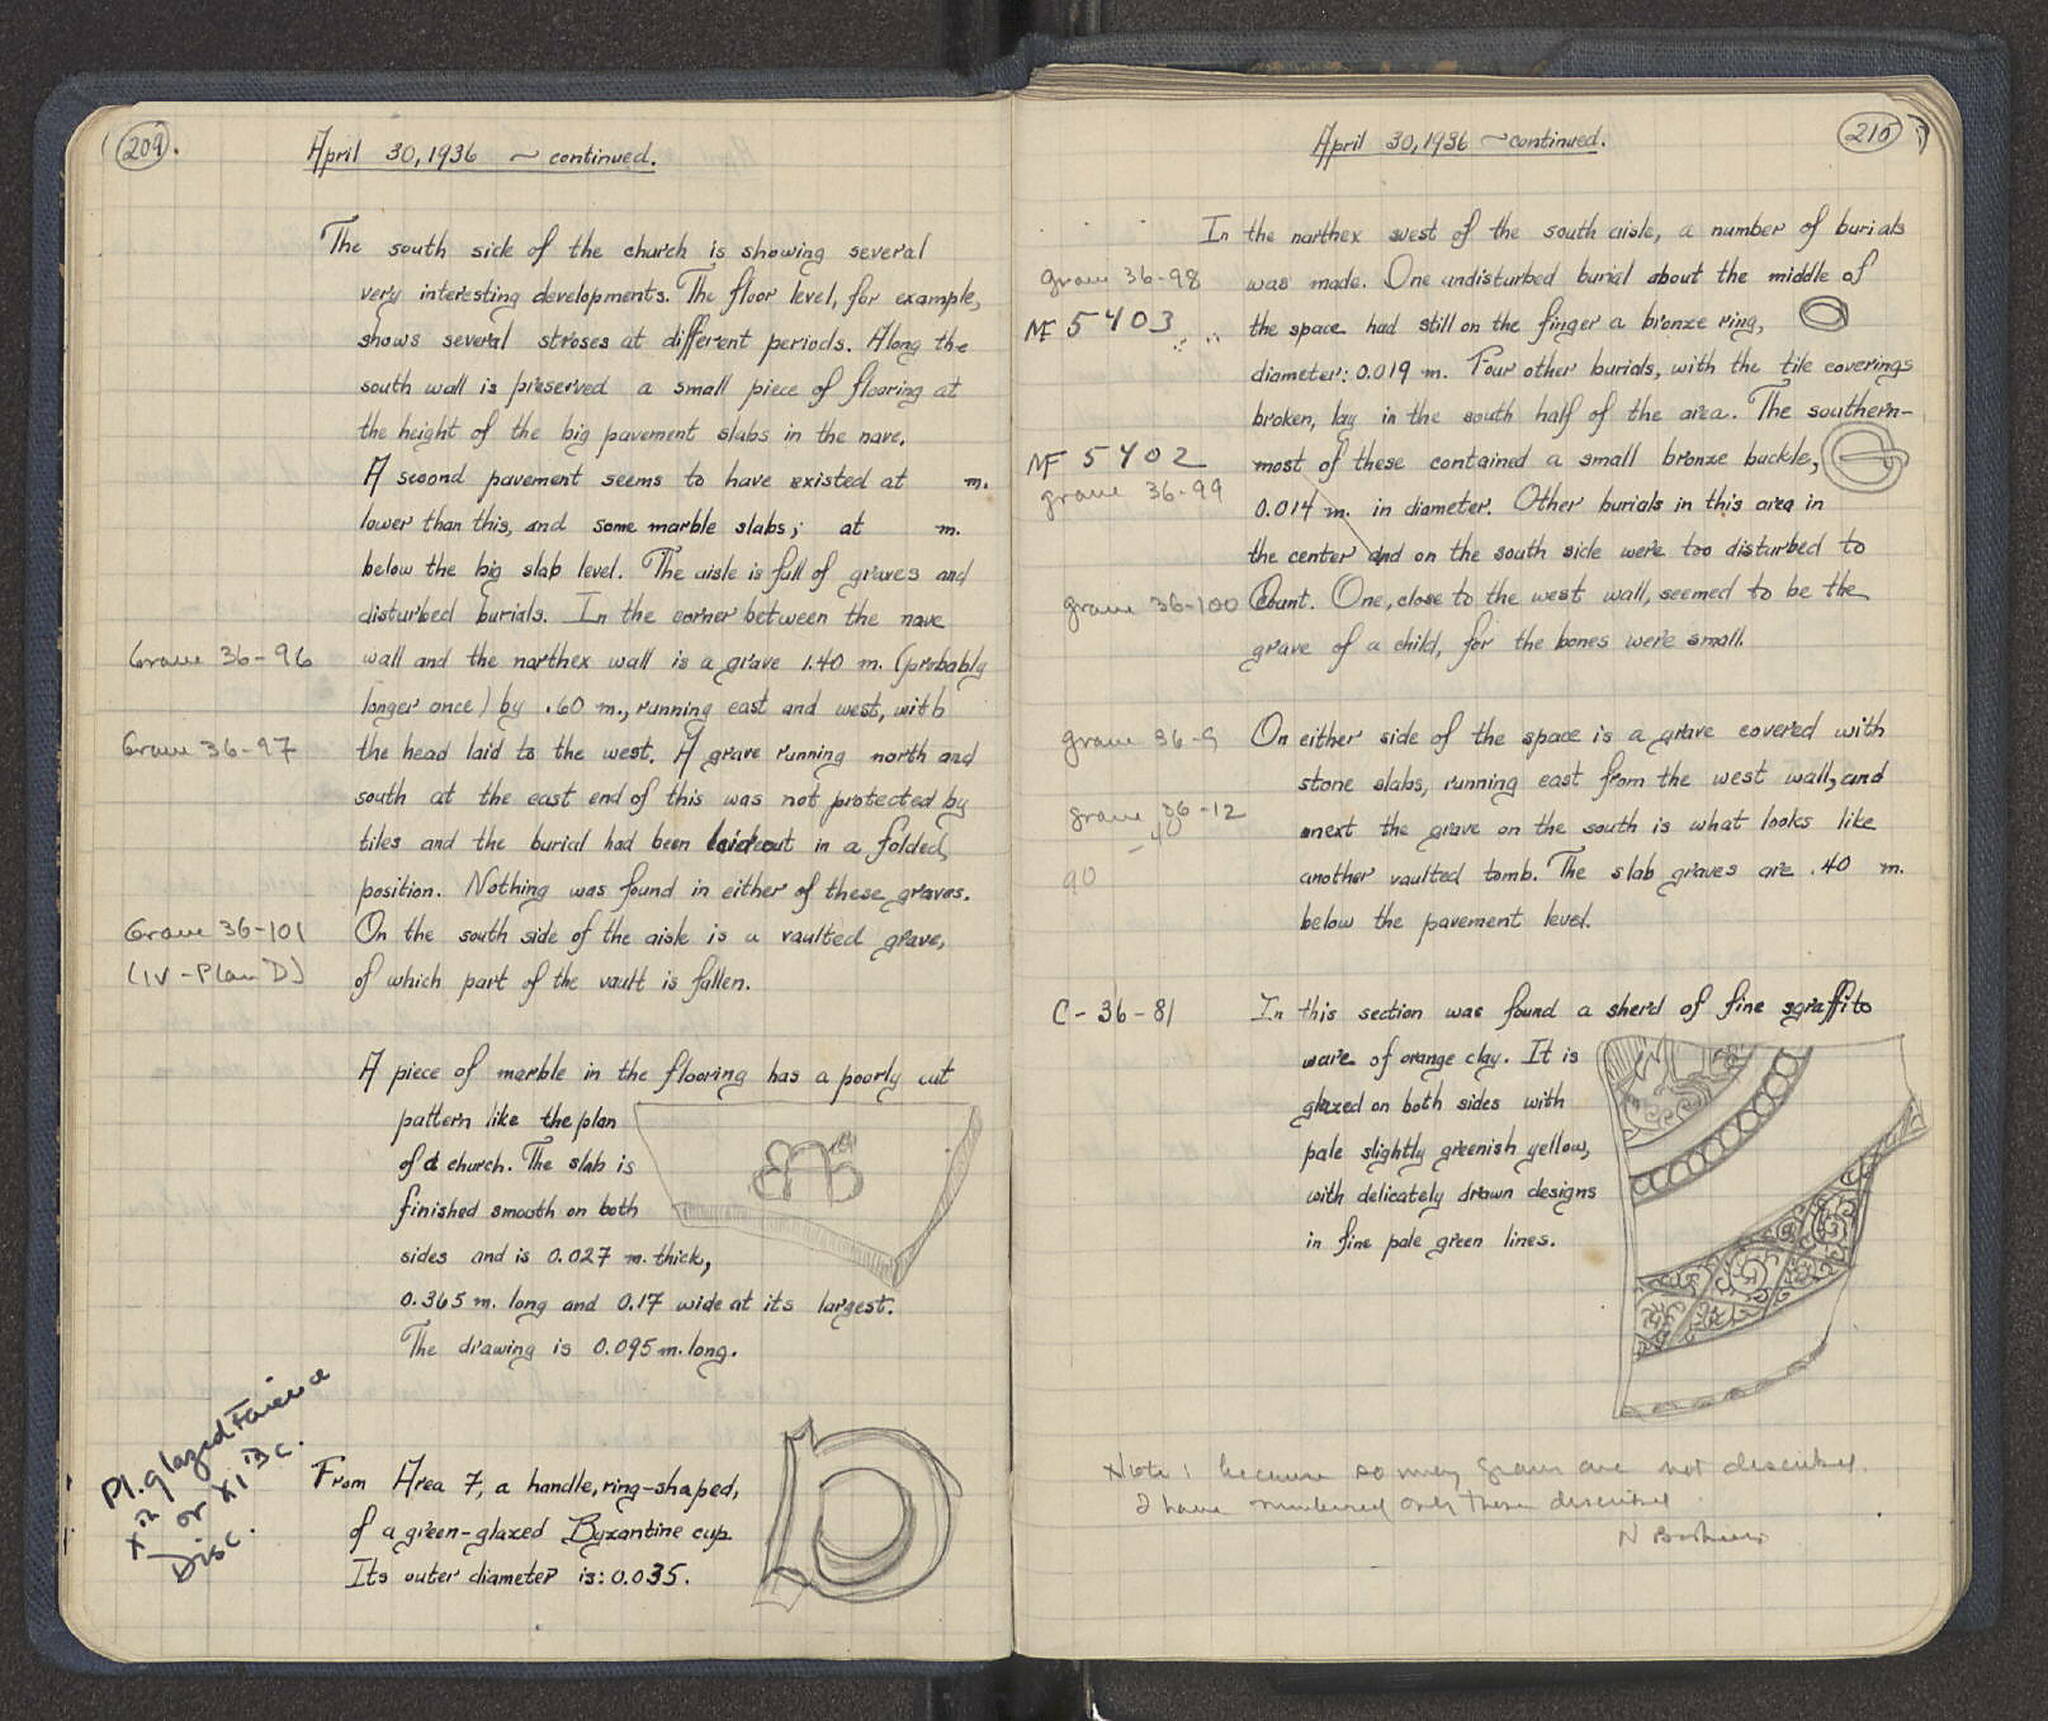 209.
April 30, 1936 ~ continued.
The south side of the church is showing several
very interesting developments. The floor level, for example,
shows several stroses at different periods. Along the
south wall is preserved a small piece of flooring at
the height of the big pavement slabs in the nave.
A second pavement seems to have existed at m.
lower than this, and some marble slabs; at m.
below the big slab level. The aisle is full of graves and
disturbed burials. In the corner between the nave
Grave 36-96 wall and the narthex wall is a grave 1.40 m. (probably
longer once) by .60 m., running east and west, with
Grave 36-97 the head laid to the west. A grave running north and
south at the east end of this was not protected by
tiles and the burial had been laid out in a folded
position. Nothing was found in either of these graves.
Grave 36-101 On the south side of the aisle is a vaulted grave,
(IV-Plan D) of which part of the vault is fallen.
A piece of marble in the flooring has a poorly cut
pattern like the plan
of a church. The slab is
finished smooth on both
sides and is 0.027 m. thick,
0.365 m. long and 0.17 wide at its largest.
The drawing is 0.095 m. long.
Pl. glazed Faience
Xth or XIth c.
Disc.
From Area 7, a handle, ring-shaped,
of a green-glazed Byzantine cup.
Its outer diameter is: 0.035.
210
April 30, 1936 ~ continued.
In the narthex west of the south aisle, a number of burials
grave 36-98 was made. One undisturbed burial about the middle of
MF 5403 the space had still on the finger a bronze ring,
diameter: 0.019 m. Four other burials, with the tile coverings
broken, lay in the south half of the area. The southern-
MF 5402 most of these contained a small bronze buckle,
grave 36-99 0.014 m. in diameter. Other burials in this area in
the center and on the south side were too disturbed to
grave 36-100 Count. One, close to the west wall, seemed to be the
grave of a child, for the bones were small.
grave 36-9 On either side of the space is a grave covered with
stone slabs, running east from the west wall, and
grave 36-12 next the grave on the south is what looks like
90 another vaulted tomb. The slab graves are .40 m.
below the pavement level.
C-36-81 In this section was found a sherd of fine sgraffito
ware of orange clay. It is
glazed on both sides with
pale slightly greenish yellow,
with delicately drawn designs
in fine pale green lines.
Note: because so many graves are not described
I have numbered only those described
N